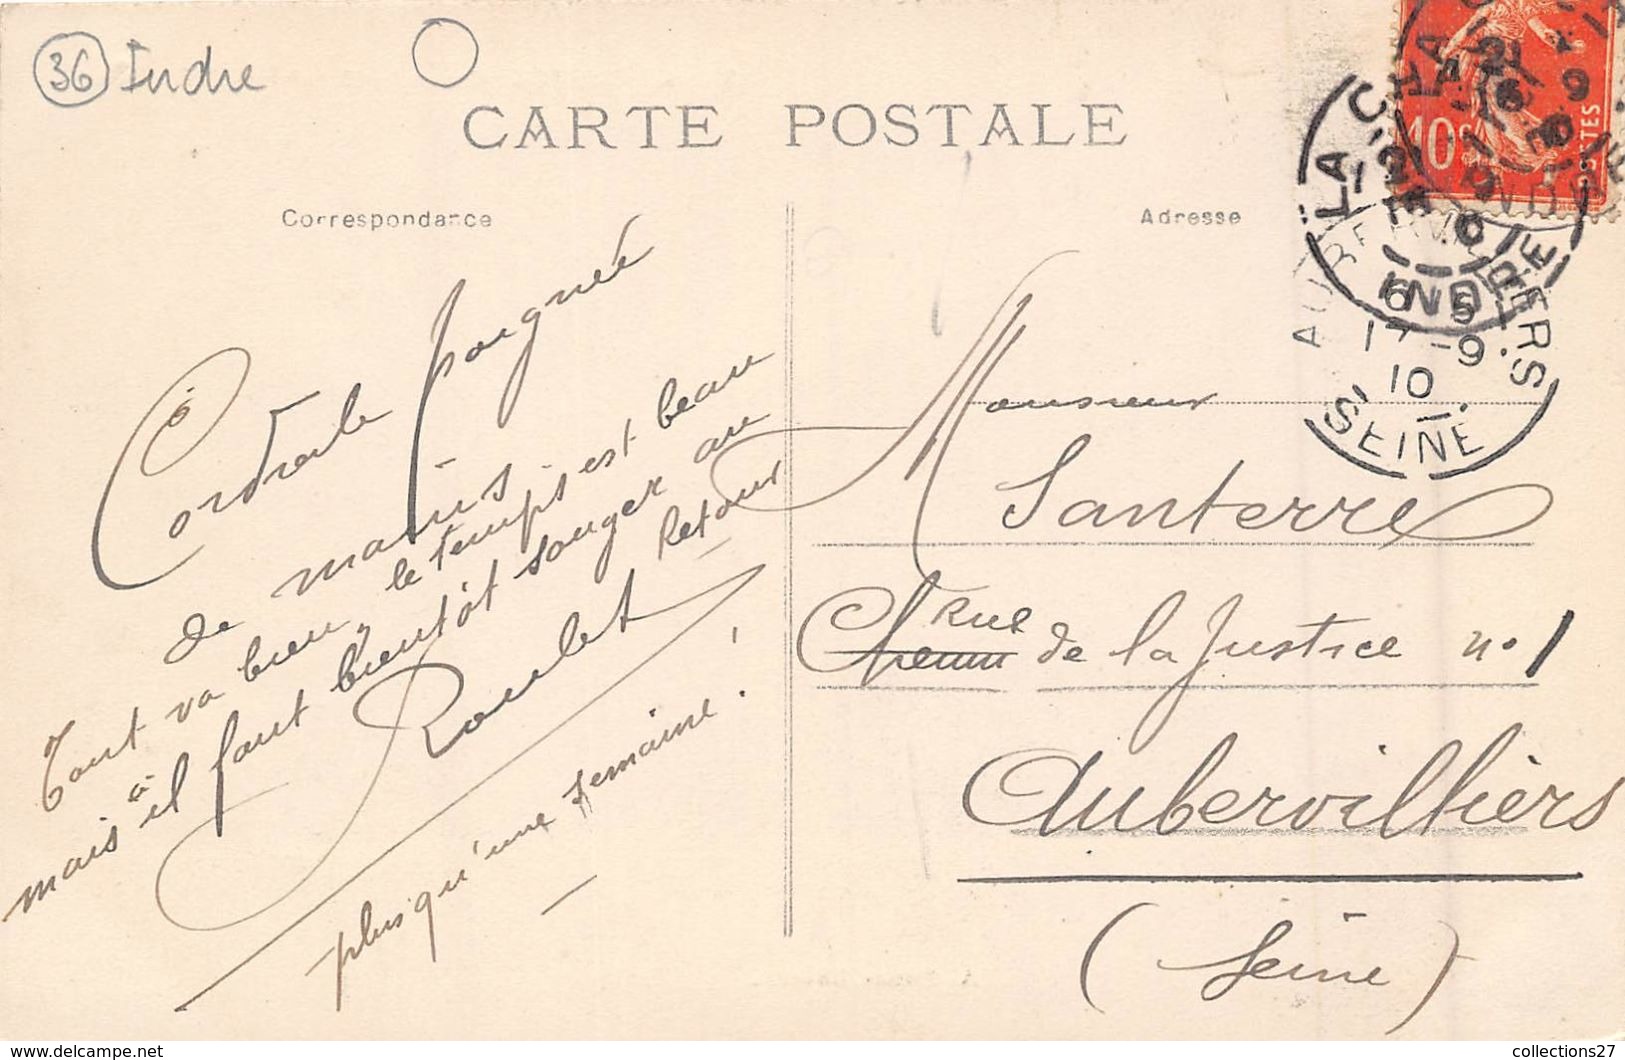 36 Indre
CARTE POSTALE
Correspondance
Adresse
Cordiale poignée
de mains
Tout va bien, le temps est beau
mais il faut bientôt songer au
Retour
Roulet
plus qu'une semaine !
Monsieur
Santerre
Chemin Rue de la Justice no 1
Aubervilliers
(Seine)
10c
POSTES
LA
INDRE
AUBERVILLIERS
6 5
17 - 9
10
SEINE
collections27